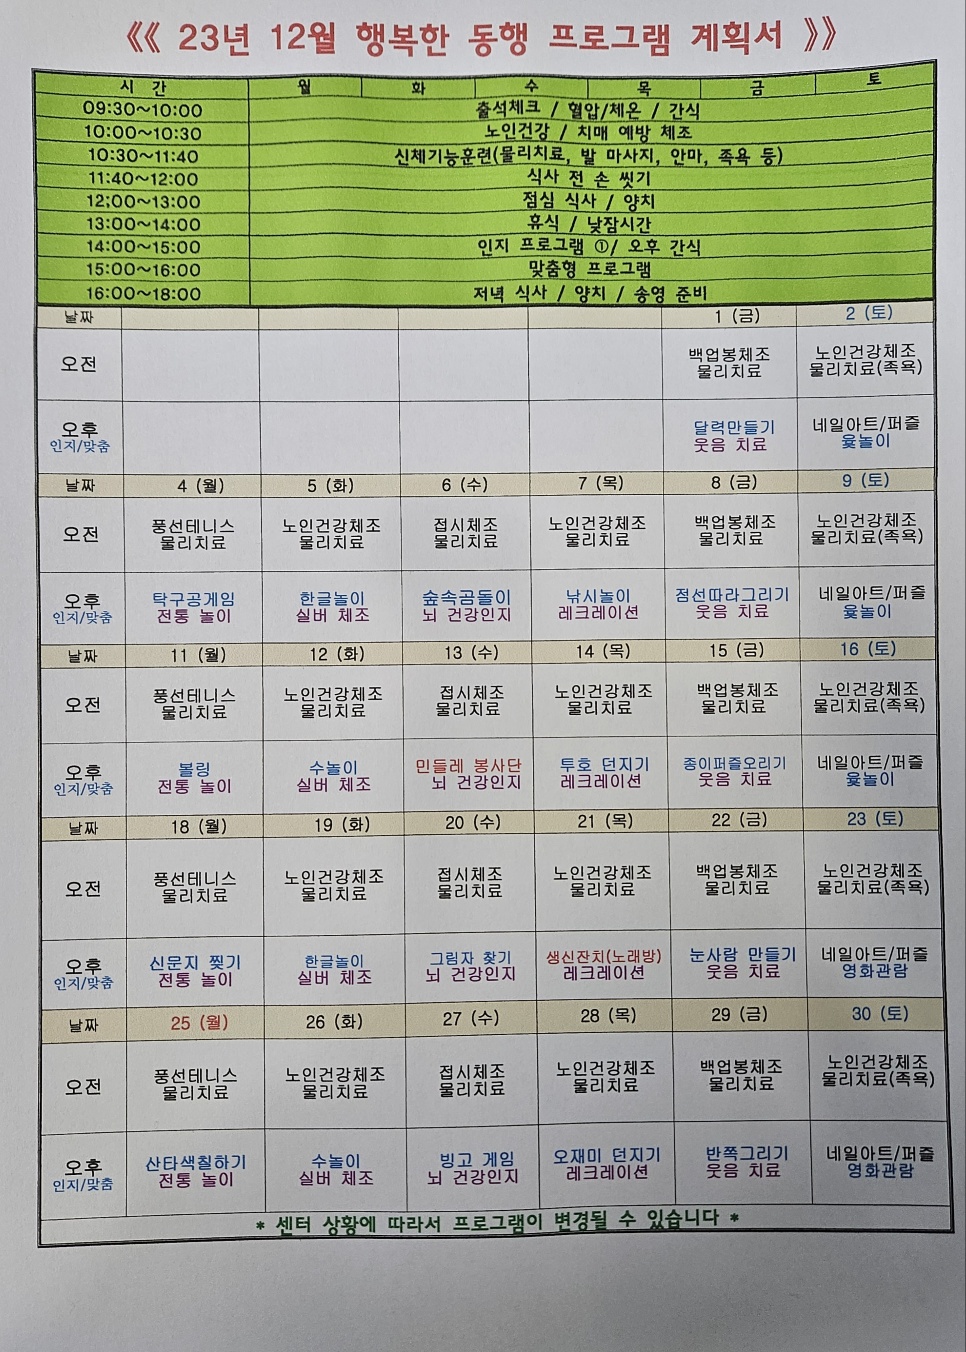 《《 23년 12월 행복한 동행 프로그램 계획서 》》
시 간 월 화 수 목 금 토
09:30~10:00 출석체크 / 혈압/체온 / 간식
10:00~10:30 노인건강 / 치매 예방 체조
10:30~11:40 신체기능훈련(물리치료, 발 마사지, 안마, 족욕 등)
11:40~12:00 식사 전 손 씻기
12:00~13:00 점심 식사 / 양치
13:00~14:00 휴식 / 낮잠시간
14:00~15:00 인지 프로그램 ①/ 오후 간식
15:00~16:00 맞춤형 프로그램
16:00~18:00 저녁 식사 / 양치 / 송영 준비
날짜 1 (금) 2 (토)
오전 백업봉체조 노인건강체조
물리치료 물리치료(족욕)
오후 달력만들기 네일아트/퍼즐
인지/맞춤 웃음 치료 윷놀이
날짜 4 (월) 5 (화) 6 (수) 7 (목) 8 (금) 9 (토)
오전 풍선테니스 노인건강체조 접시체조 노인건강체조 백업봉체조 노인건강체조
물리치료 물리치료 물리치료 물리치료 물리치료 물리치료(족욕)
오후 탁구공게임 한글놀이 숲속곰돌이 낚시놀이 점선따라그리기 네일아트/퍼즐
인지/맞춤 전통 놀이 실버 체조 뇌 건강인지 레크레이션 웃음 치료 윷놀이
날짜 11 (월) 12 (화) 13 (수) 14 (목) 15 (금) 16 (토)
오전 풍선테니스 노인건강체조 접시체조 노인건강체조 백업봉체조 노인건강체조
물리치료 물리치료 물리치료 물리치료 물리치료 물리치료(족욕)
오후 볼링 수놀이 민들레 봉사단 투호 던지기 종이퍼즐오리기 네일아트/퍼즐
인지/맞춤 전통 놀이 실버 체조 뇌 건강인지 레크레이션 웃음 치료 윷놀이
날짜 18 (월) 19 (화) 20 (수) 21 (목) 22 (금) 23 (토)
오전 풍선테니스 노인건강체조 접시체조 노인건강체조 백업봉체조 노인건강체조
물리치료 물리치료 물리치료 물리치료 물리치료 물리치료(족욕)
오후 신문지 찢기 한글놀이 그림자 찾기 생신잔치(노래방) 눈사람 만들기 네일아트/퍼즐
인지/맞춤 전통 놀이 실버 체조 뇌 건강인지 레크레이션 웃음 치료 영화관람
날짜 25 (월) 26 (화) 27 (수) 28 (목) 29 (금) 30 (토)
오전 풍선테니스 노인건강체조 접시체조 노인건강체조 백업봉체조 노인건강체조
물리치료 물리치료 물리치료 물리치료 물리치료 물리치료(족욕)
오후 산타색칠하기 수놀이 빙고 게임 오재미 던지기 반쪽그리기 네일아트/퍼즐
인지/맞춤 전통 놀이 실버 체조 뇌 건강인지 레크레이션 웃음 치료 영화관람
* 센터 상황에 따라서 프로그램이 변경될 수 있습니다 *